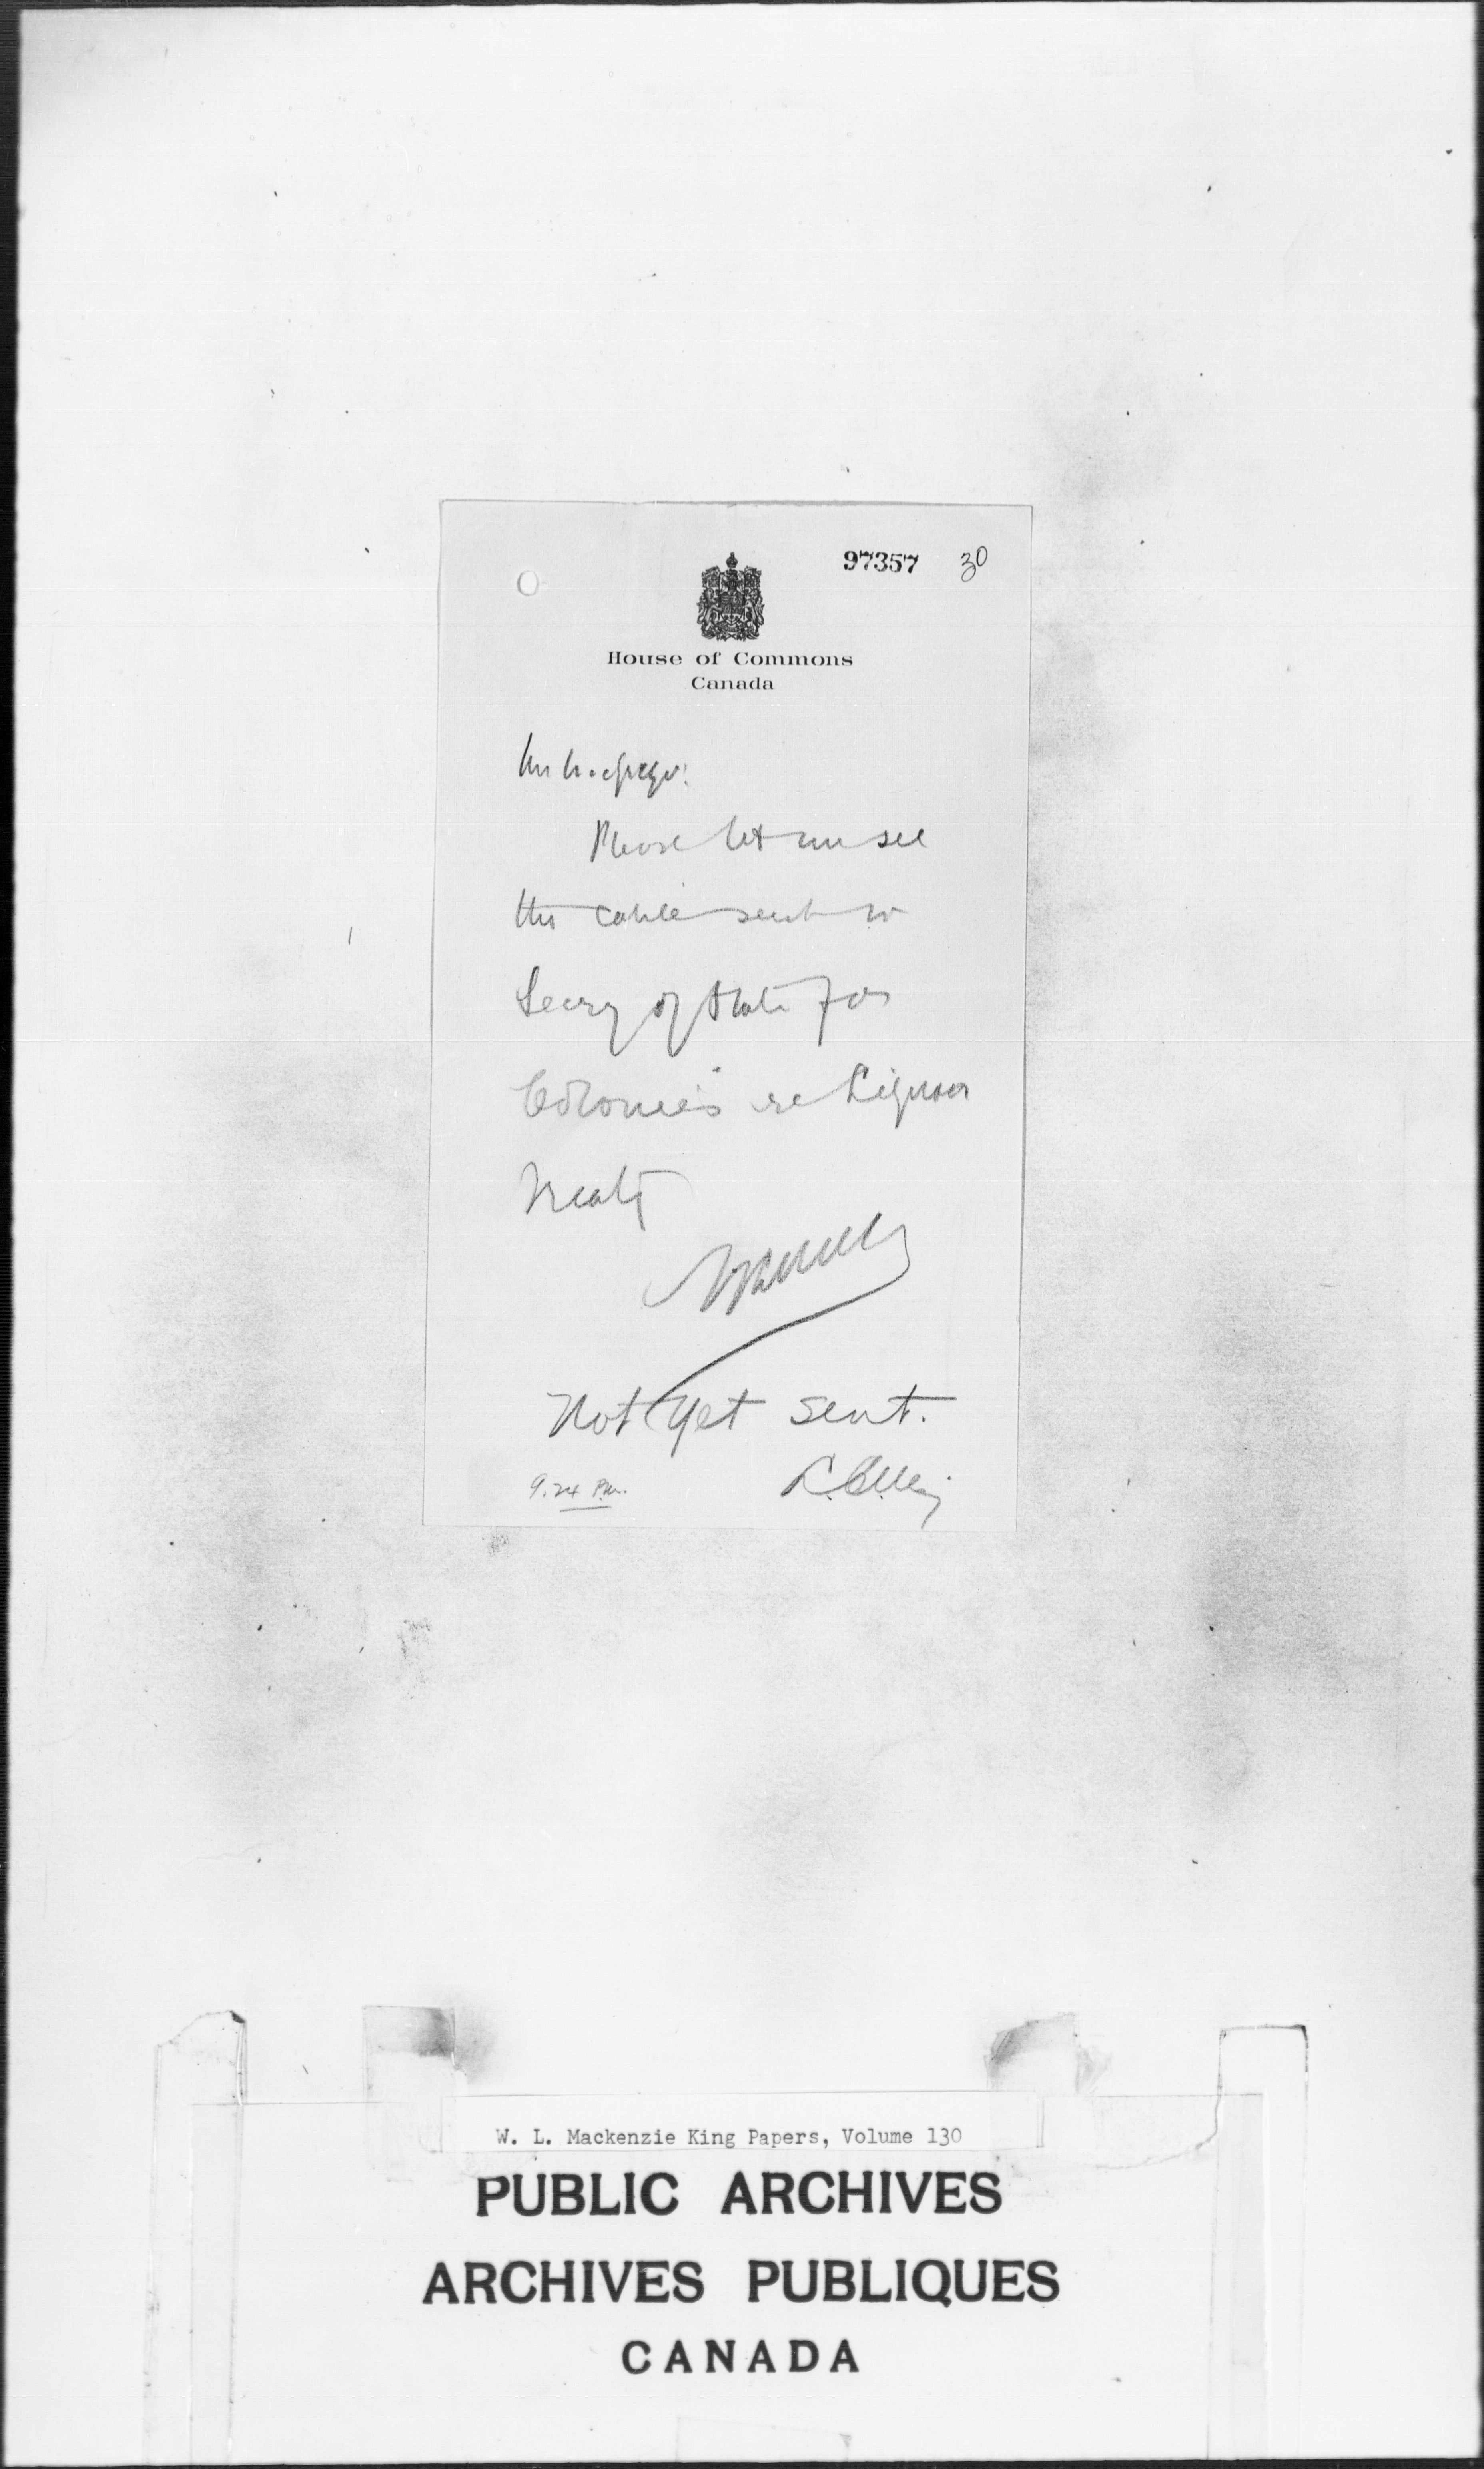 97357 30
House of Commons
Canada
Mr McGregor:
Please let me see
the cable sent to
Secry of State for
Colonies re Liquor
Treaty
Not yet sent.
9.24 P.M.
W. L. Mackenzie King Papers, Volume 130
PUBLIC ARCHIVES
ARCHIVES PUBLIQUES
CANADA